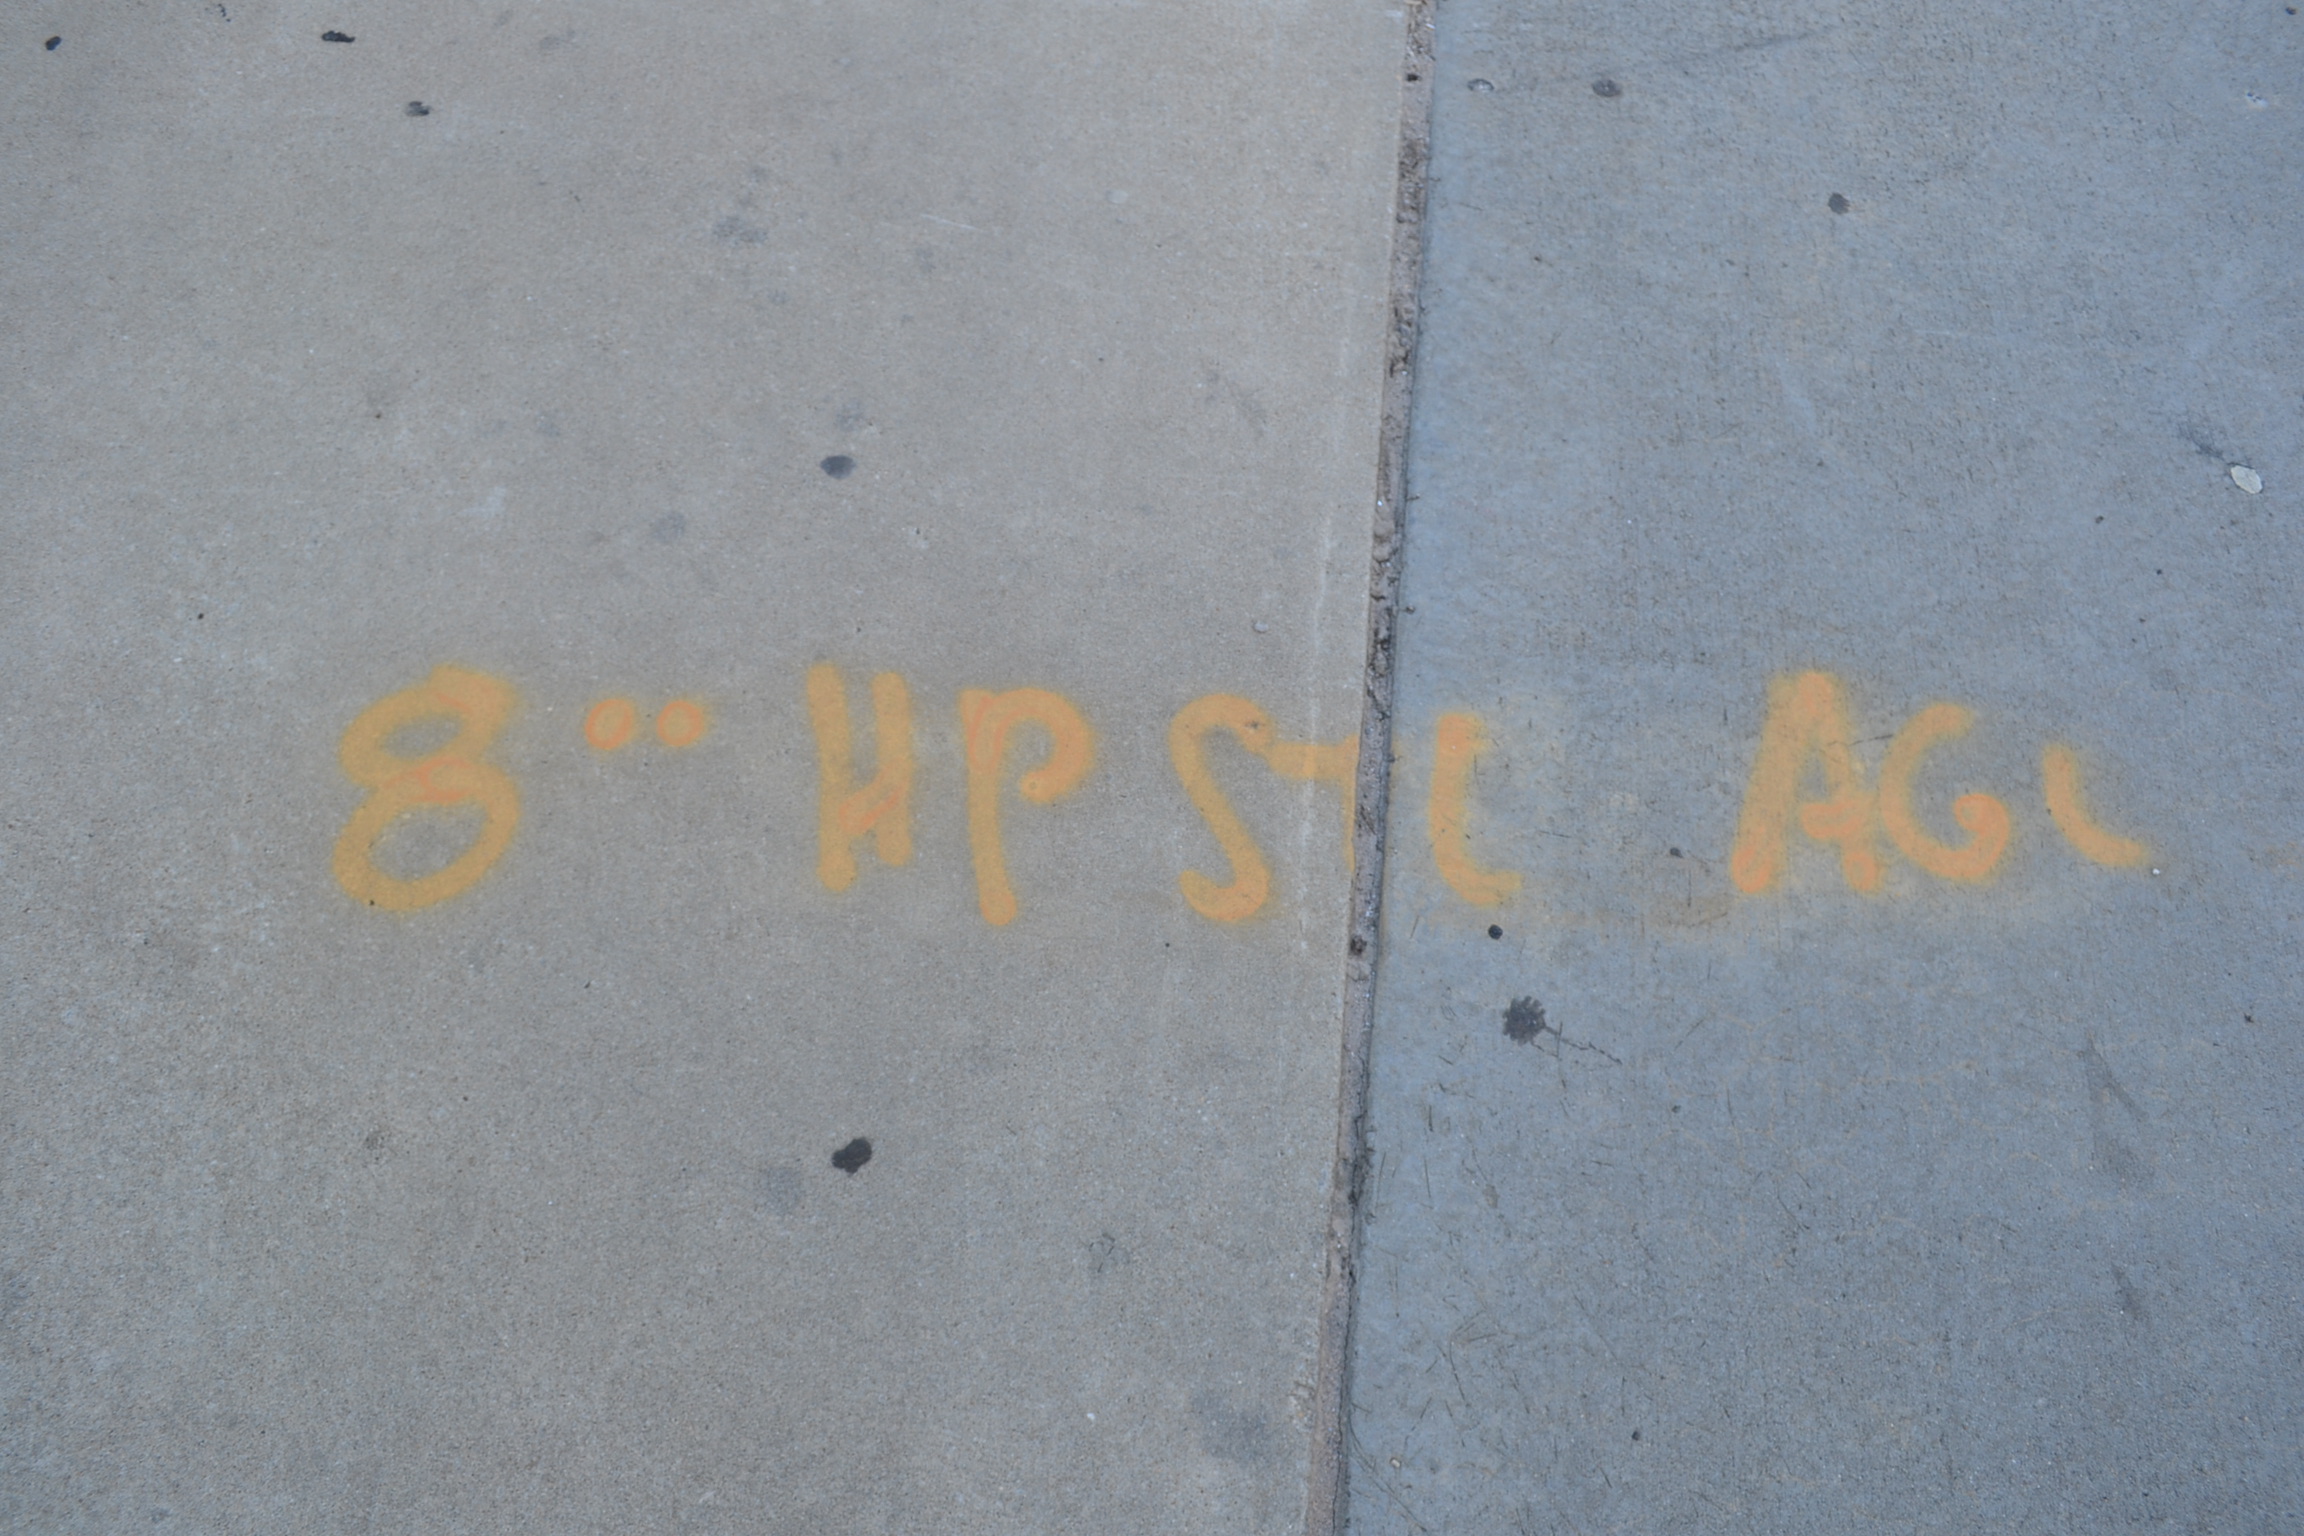 8" HP STL AGL